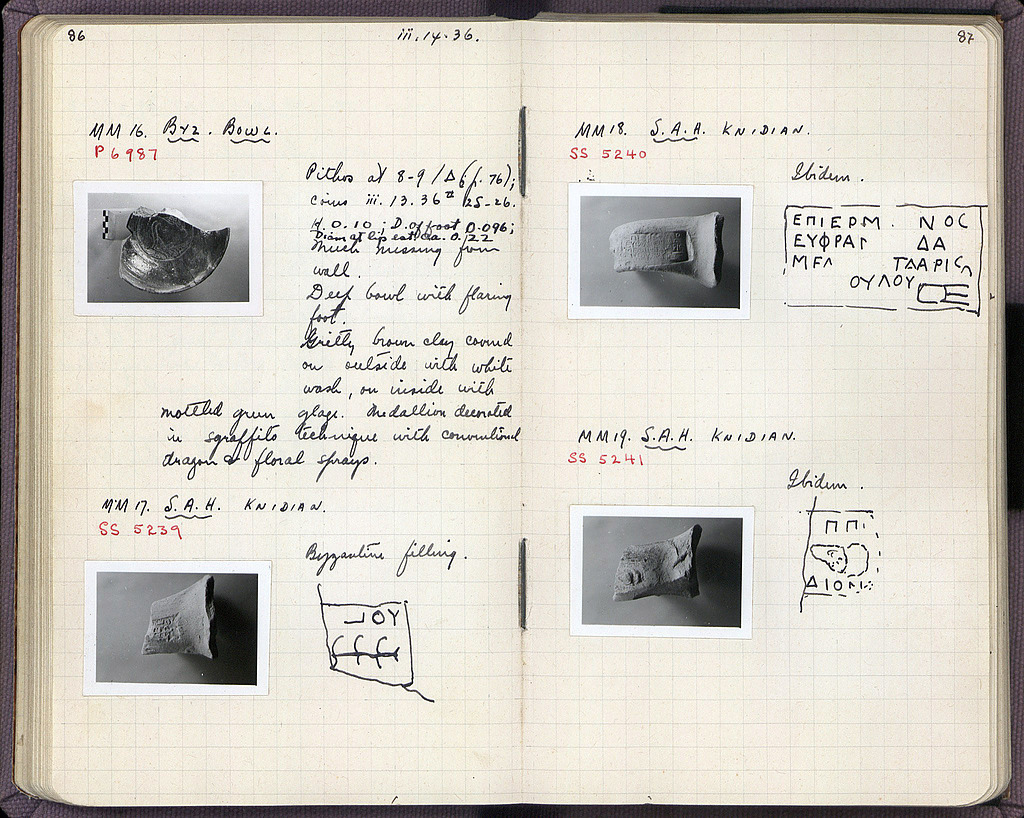 86
iii.14.36.
MM 16. Byz. Bowl.
P 6987
Pithos at 8-9/Δ (p. 76);
coins iii. 13.36 25-26.
H. 0.10; D. of foot 0.096;
Diam at lip est. ca. 0.22
Much missing from
wall.
Deep bowl with flaring
foot.
Gritty brown clay covered
on outside with white
wash, on inside with
mottled green glaze. Medallion decorated
in sgraffito technique with conventional
dragon & floral sprays.
MM 17. S.A.H. KNIDIAN.
SS 5239
Byzantine filling.
ΟΥ
87
MM 18. S.A.H. KNIDIAN.
SS 5240
Ibidem.
ΕΠΙΕΡΜ. ΝΟC
ΕΥΦΡΑΓ ΔΑ
ΜΕΛ
ΟΥΛΟΥ
MM 19. S.A.H. KNIDIAN.
SS 5241
Ibidem.
ΠΠ
ΔΙΟΝ